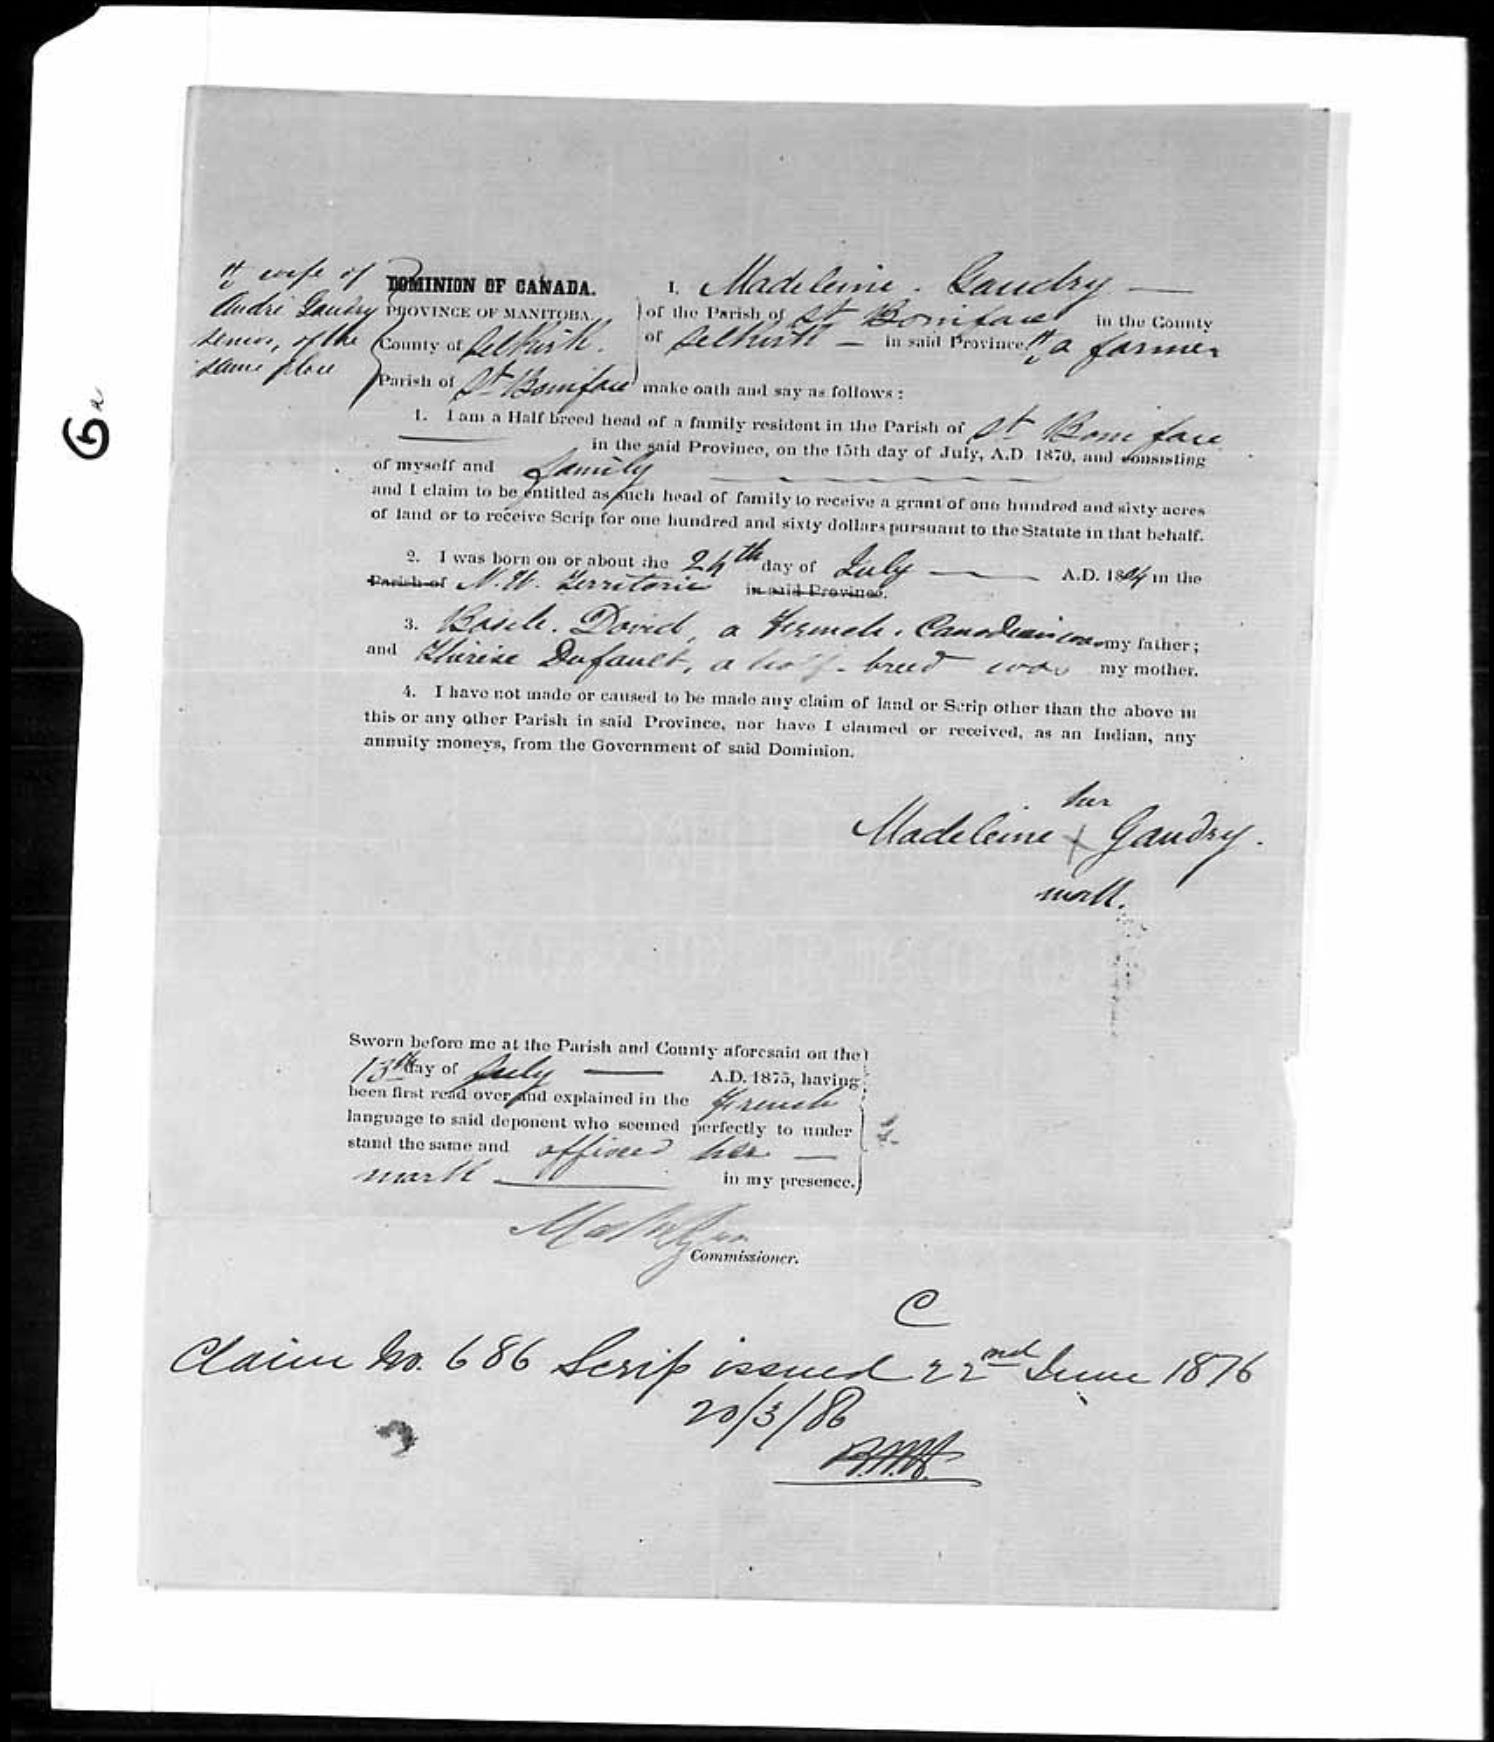 6a
# wife of
André Gaudry
senior, of the
same place
DOMINION OF CANADA.
PROVINCE OF MANITOBA.
County of Selkirk.
Parish of St Boniface
I, Madeleine Gaudry —
of the Parish of St Boniface in the County
of Selkirk — in said Province, # a farmer
make oath and say as follows :
1. I am a Half breed head of a family resident in the Parish of St Boniface
in the said Province, on the 15th day of July, A.D 1870, and consisting
of myself and family
and I claim to be entitled as such head of family to receive a grant of one hundred and sixty acres
of land or to receive Scrip for one hundred and sixty dollars pursuant to the Statute in that behalf.
2. I was born on or about the 24th day of July — A.D. 1804 in the
Parish of N. W. Territorie in said Province.
3. Basile David, a French Canadian was my father;
and Thérèse Dufault, a half-breed was my mother.
4. I have not made or caused to be made any claim of land or Scrip other than the above in
this or any other Parish in said Province, nor have I claimed or received, as an Indian, any
annuity moneys, from the Government of said Dominion.
her
Madeleine x Gaudry.
mark.
Sworn before me at the Parish and County aforesaid on the
13th day of July — A.D. 1875, having
been first read over and explained in the French
language to said deponent who seemed perfectly to under
stand the same and affixed her —
mark — in my presence.
Commissioner.
C
Claim No. 686 Scrip issued 22nd June 1876
20/3/86